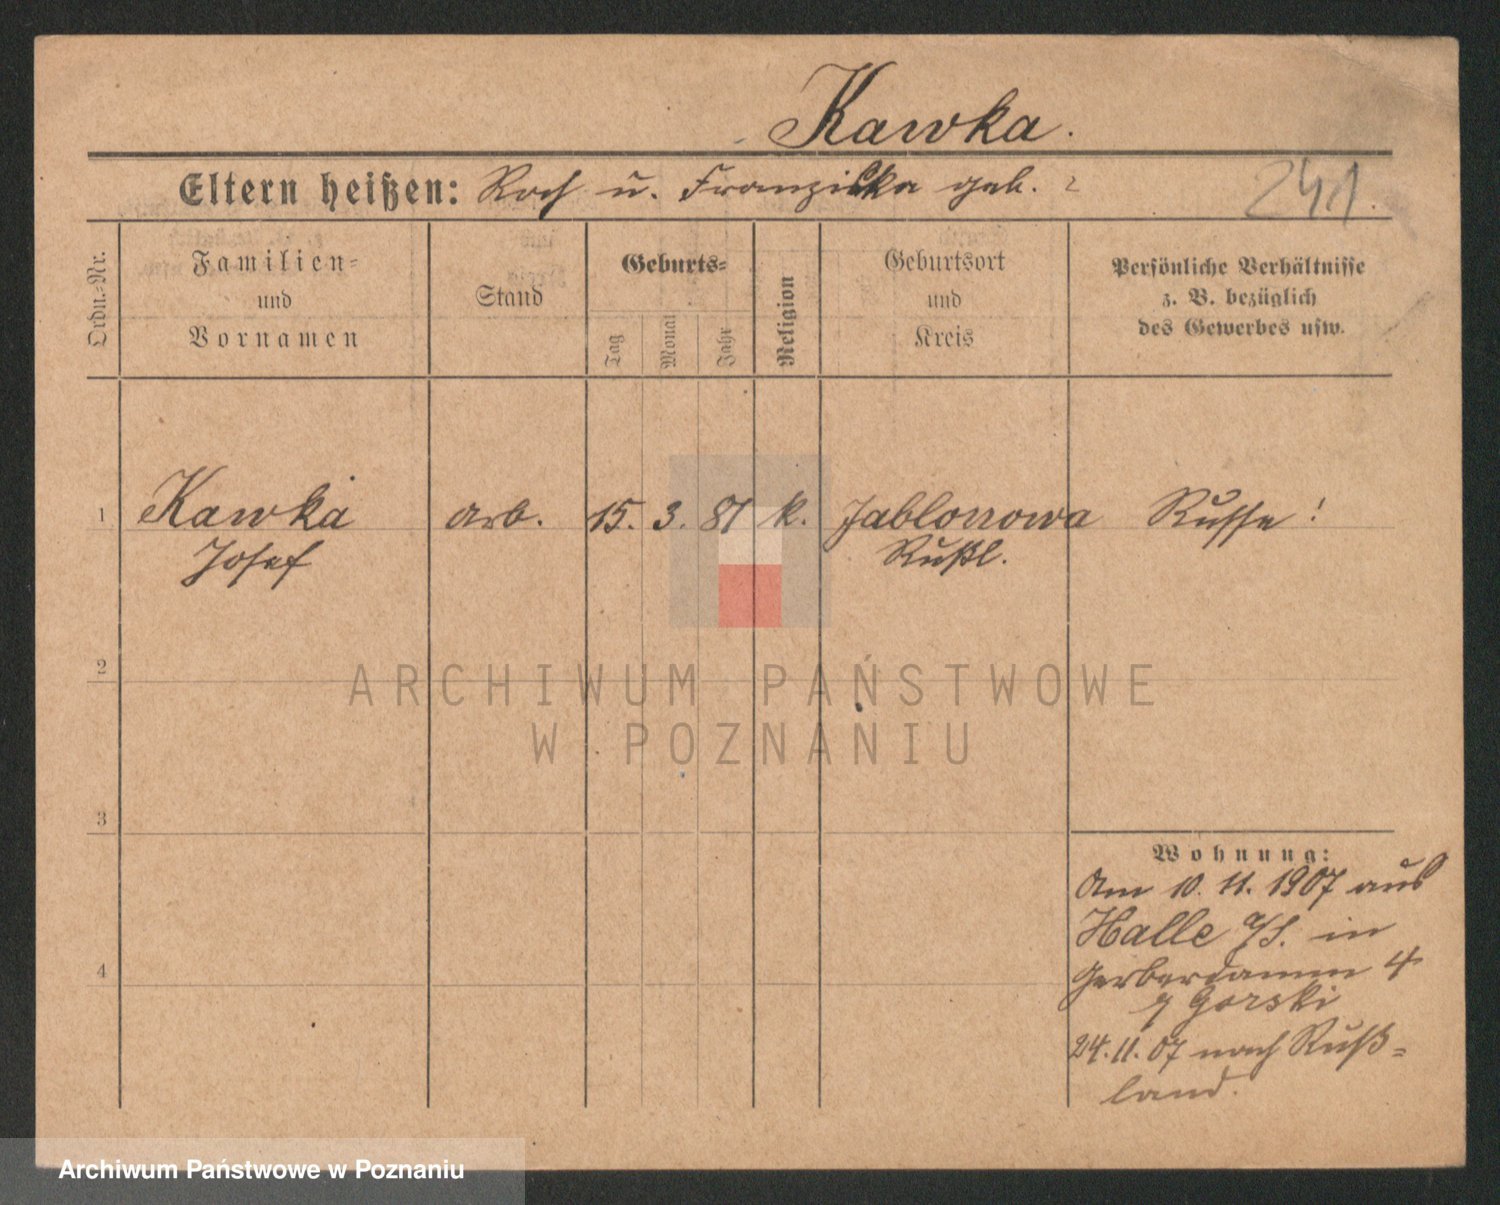 Kawka.
Eltern heißen: Roch u. Franziska geb. ?
241.
Ordn.-Nr.
Familien-
und
Vornamen
Stand
Geburts-
Tag
Monat
Jahr
Religion
Geburtsort
und
Kreis
Persönliche Verhältnisse
z. B. bezüglich
des Gewerbes usw.
1 Kawka arb. 15. 3. 81 k. Jablonowa Russe!
Josef Rußl.
2
3
4
Wohnung:
Am 10. 11. 1907 aus
Halle a/S. in
Gerberdamm 4
Gorski
24. 11. 07 nach Ruß-
land.
ARCHIWUM PAŃSTWOWE
W POZNANIU
Archiwum Państwowe w Poznaniu